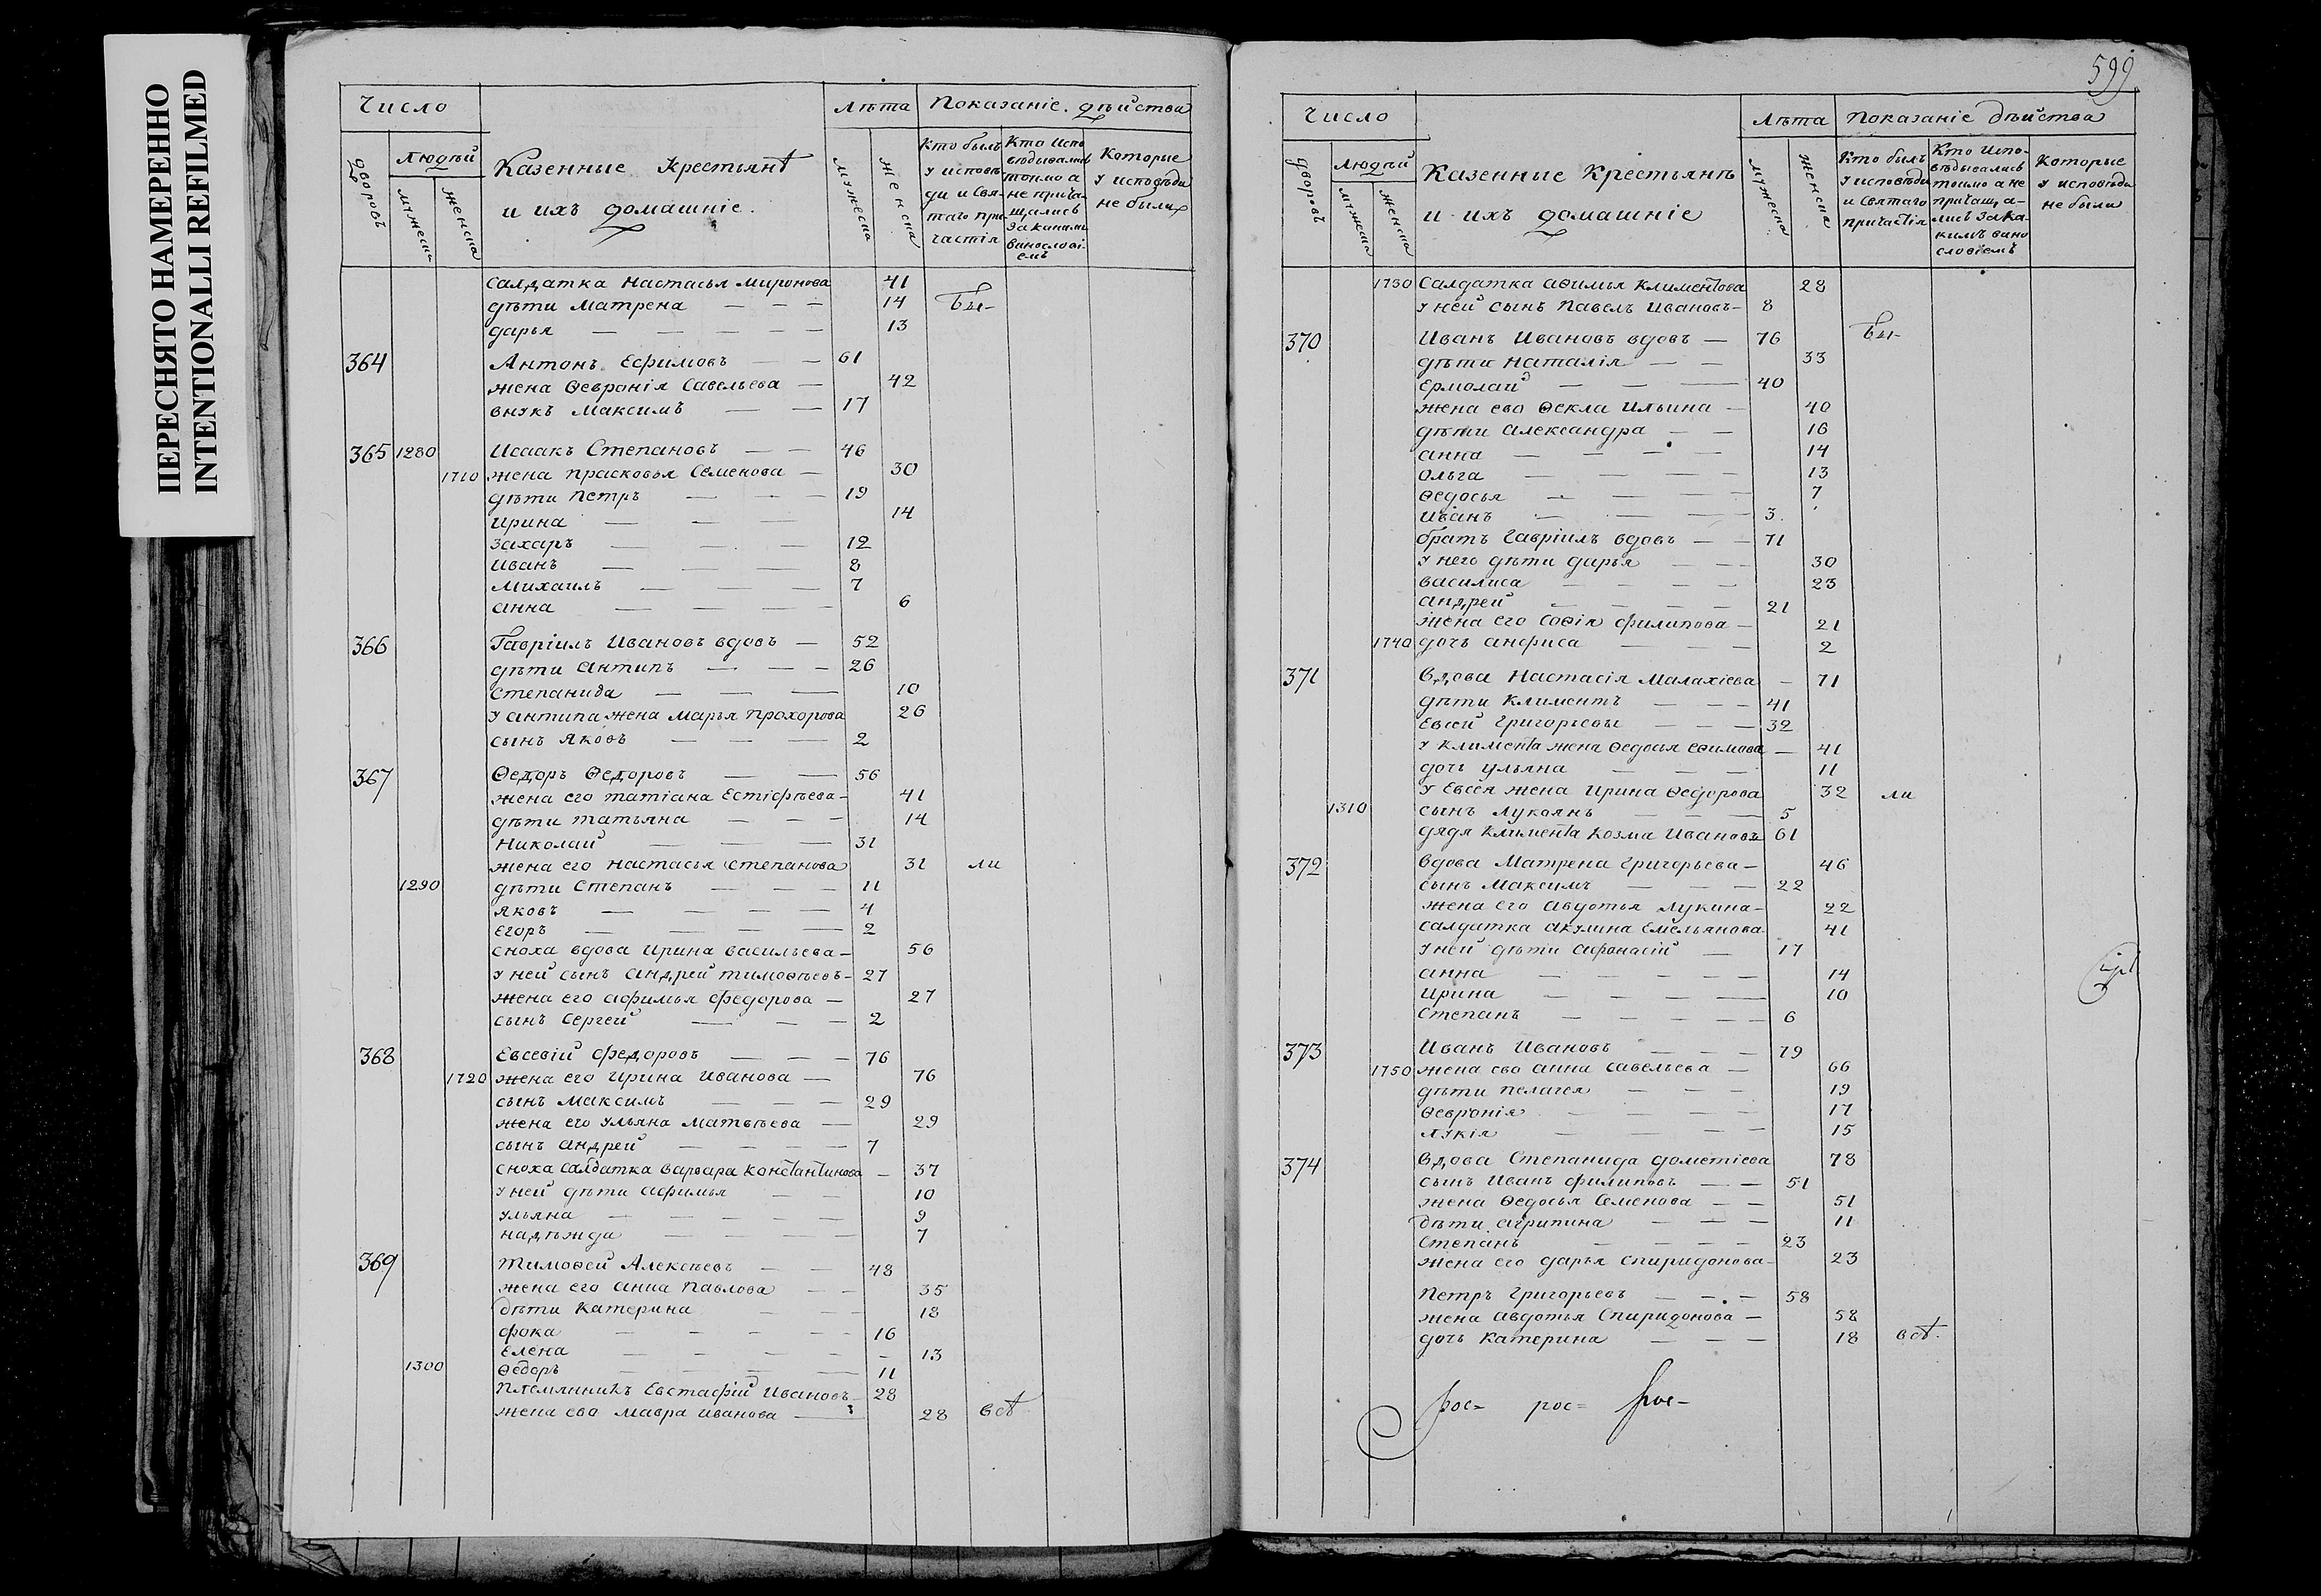 ПЕРЕСНЯТО НАМЕРЕННО
INTENTIONALLI REFILMED
Число
Лѣта
Показаніе дѣйства
дворовъ
Людѣй
мужеска
женска
Казенные Крестьянѣ
и ихъ домашніе.
мужеска
женска
Кто былъ у исповѣди и Святаго причастія
Кто исповѣдывались токмо а не причащались за какимъ винословіемъ
Которые у исповѣди не были
Салдатка Настасья Миронова 41
дѣти Матрена — — — 14 бы-
дарья — — — — — 13
364 Антонъ Ефимовъ — — 61
жена Ѳевронія Савельева — 42
внукъ Максимъ — — 17
365 1280 Исаакъ Степановъ — — 46
1710 жена Прасковья Семенова — 30
дѣти Петръ — — — 19
Ирина — — — 14
Захаръ — — — 12
Иванъ — — — — 8
Михаилъ — — — 7
анна — — — — 6
366 Гавріилъ Ивановъ вдовъ — 52
дѣти Антипъ — — — 26
Степанида — — — 10
у антипа жена Марья Прохорова 26
сынъ Яковъ — — — 2
367 Ѳедоръ Ѳедоровъ — — 56
жена его татіана Естіфѣева - 41
дѣти татьяна — — — 14
Николай — — — 31
жена его настасья Степанова 31 ли
1290 дѣти Степанъ — — — 11
Яковъ — — — — 4
Егоръ — — — — 2
сноха вдова Ирина васильева - 56
у ней сынъ андрей тимоѳѣевъ - 27
жена его афимья федорова — 27
сынъ Сергей — — — 2
368 Евсевій федоровъ — — — 76
1720 жена его Ирина Иванова — 76
сынъ Максимъ — — — 29
жена его ульяна Матвѣева — 29
сынъ андрей — — — — 7
сноха салдатка варвара константинова — 37
у ней дѣти афимья — — 10
ульяна — — — — — 9
надѣжда — — — — 7
369 Тимоѳей Алексѣевъ — — 48
жена его анна Павлова — — 35
дѣти Катерина — — — 18
фока — — — — — 16
Елена — — — — — 13
1300 Ѳедоръ — — — 11
Племянникъ Евстафій Ивановъ - 28
жена ево мавра иванова — 28 всѣ
599.
Число
Лѣта
Показаніе дѣйства
дворовъ
Людѣй
мужеска
женска
Казенные Крестьянѣ
и ихъ домашніе
мужеска
женска
Кто былъ у исповѣди и Святаго причастія
Кто Исповѣдывались токмо а не причащались за какимъ винословіемъ
Которые у исповѣди не были
1730 Салдатка аѳимья климентова 28
у ней сынъ Павелъ Ивановъ - 8
370 Иванъ Ивановъ вдовъ — 76 бы-
дѣти наталія — — 33
ермолай — — — 40
жена ево Ѳекла Ильина — 40
дѣти александра — — 16
анна — — — — 14
ольга — — — — 13
Ѳедосья — — — — 7
Иванъ — — — 3.
братъ Гавріилъ вдовъ — — 71
у него дѣти дарья — — 30
василиса — — — — 23
андрей — — — — 21
жена его Софія филипова — 21
1740 дочь анфиса — — — 2
371 Вдова Настасія Малахіева — 71
дѣти климентъ — — — 41
Евсей Григорьевы — — — 32
у климента жена Ѳедосья еѳимова — 41
дочь ульяна — — — 11
у Евсея жена Ирина Ѳедорова 32 ли
1310 сынъ Лукоянъ — — — 5
дядя климента козма Ивановъ 61
372 вдова Матрена Григорьева — 46
сынъ Максимъ — — — 22
жена его авдотья лукина - 22
салдатка акулина Емельянова 41
у ней дѣти афонасій — 17
анна — — — — — 14
Ирина — — — — 10
Степанъ — — — — 6
373 Иванъ Ивановъ — — — 79
1750 жена ево анна савельева — 66
дѣти пелагея — — — 19
Ѳевронія — — — — 17
лукія — — — — 15
374 Вдова Степанида дометіева 78
сынъ Иванъ филиповъ — — 51
жена Ѳедосья Семенова — — 51
дѣти агрипина — — — 11
Степанъ — — — — 23
жена его дарья спиридонова - 23
Петръ Григорьевъ — — — 58
жена авдотья Спиридонова — 58
дочь катерина — — — 18 всѣ.
рос= рос= рос-